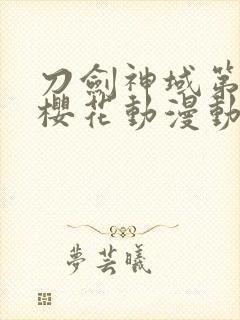 刀劍神域第
櫻花動漫動
夢芸曦